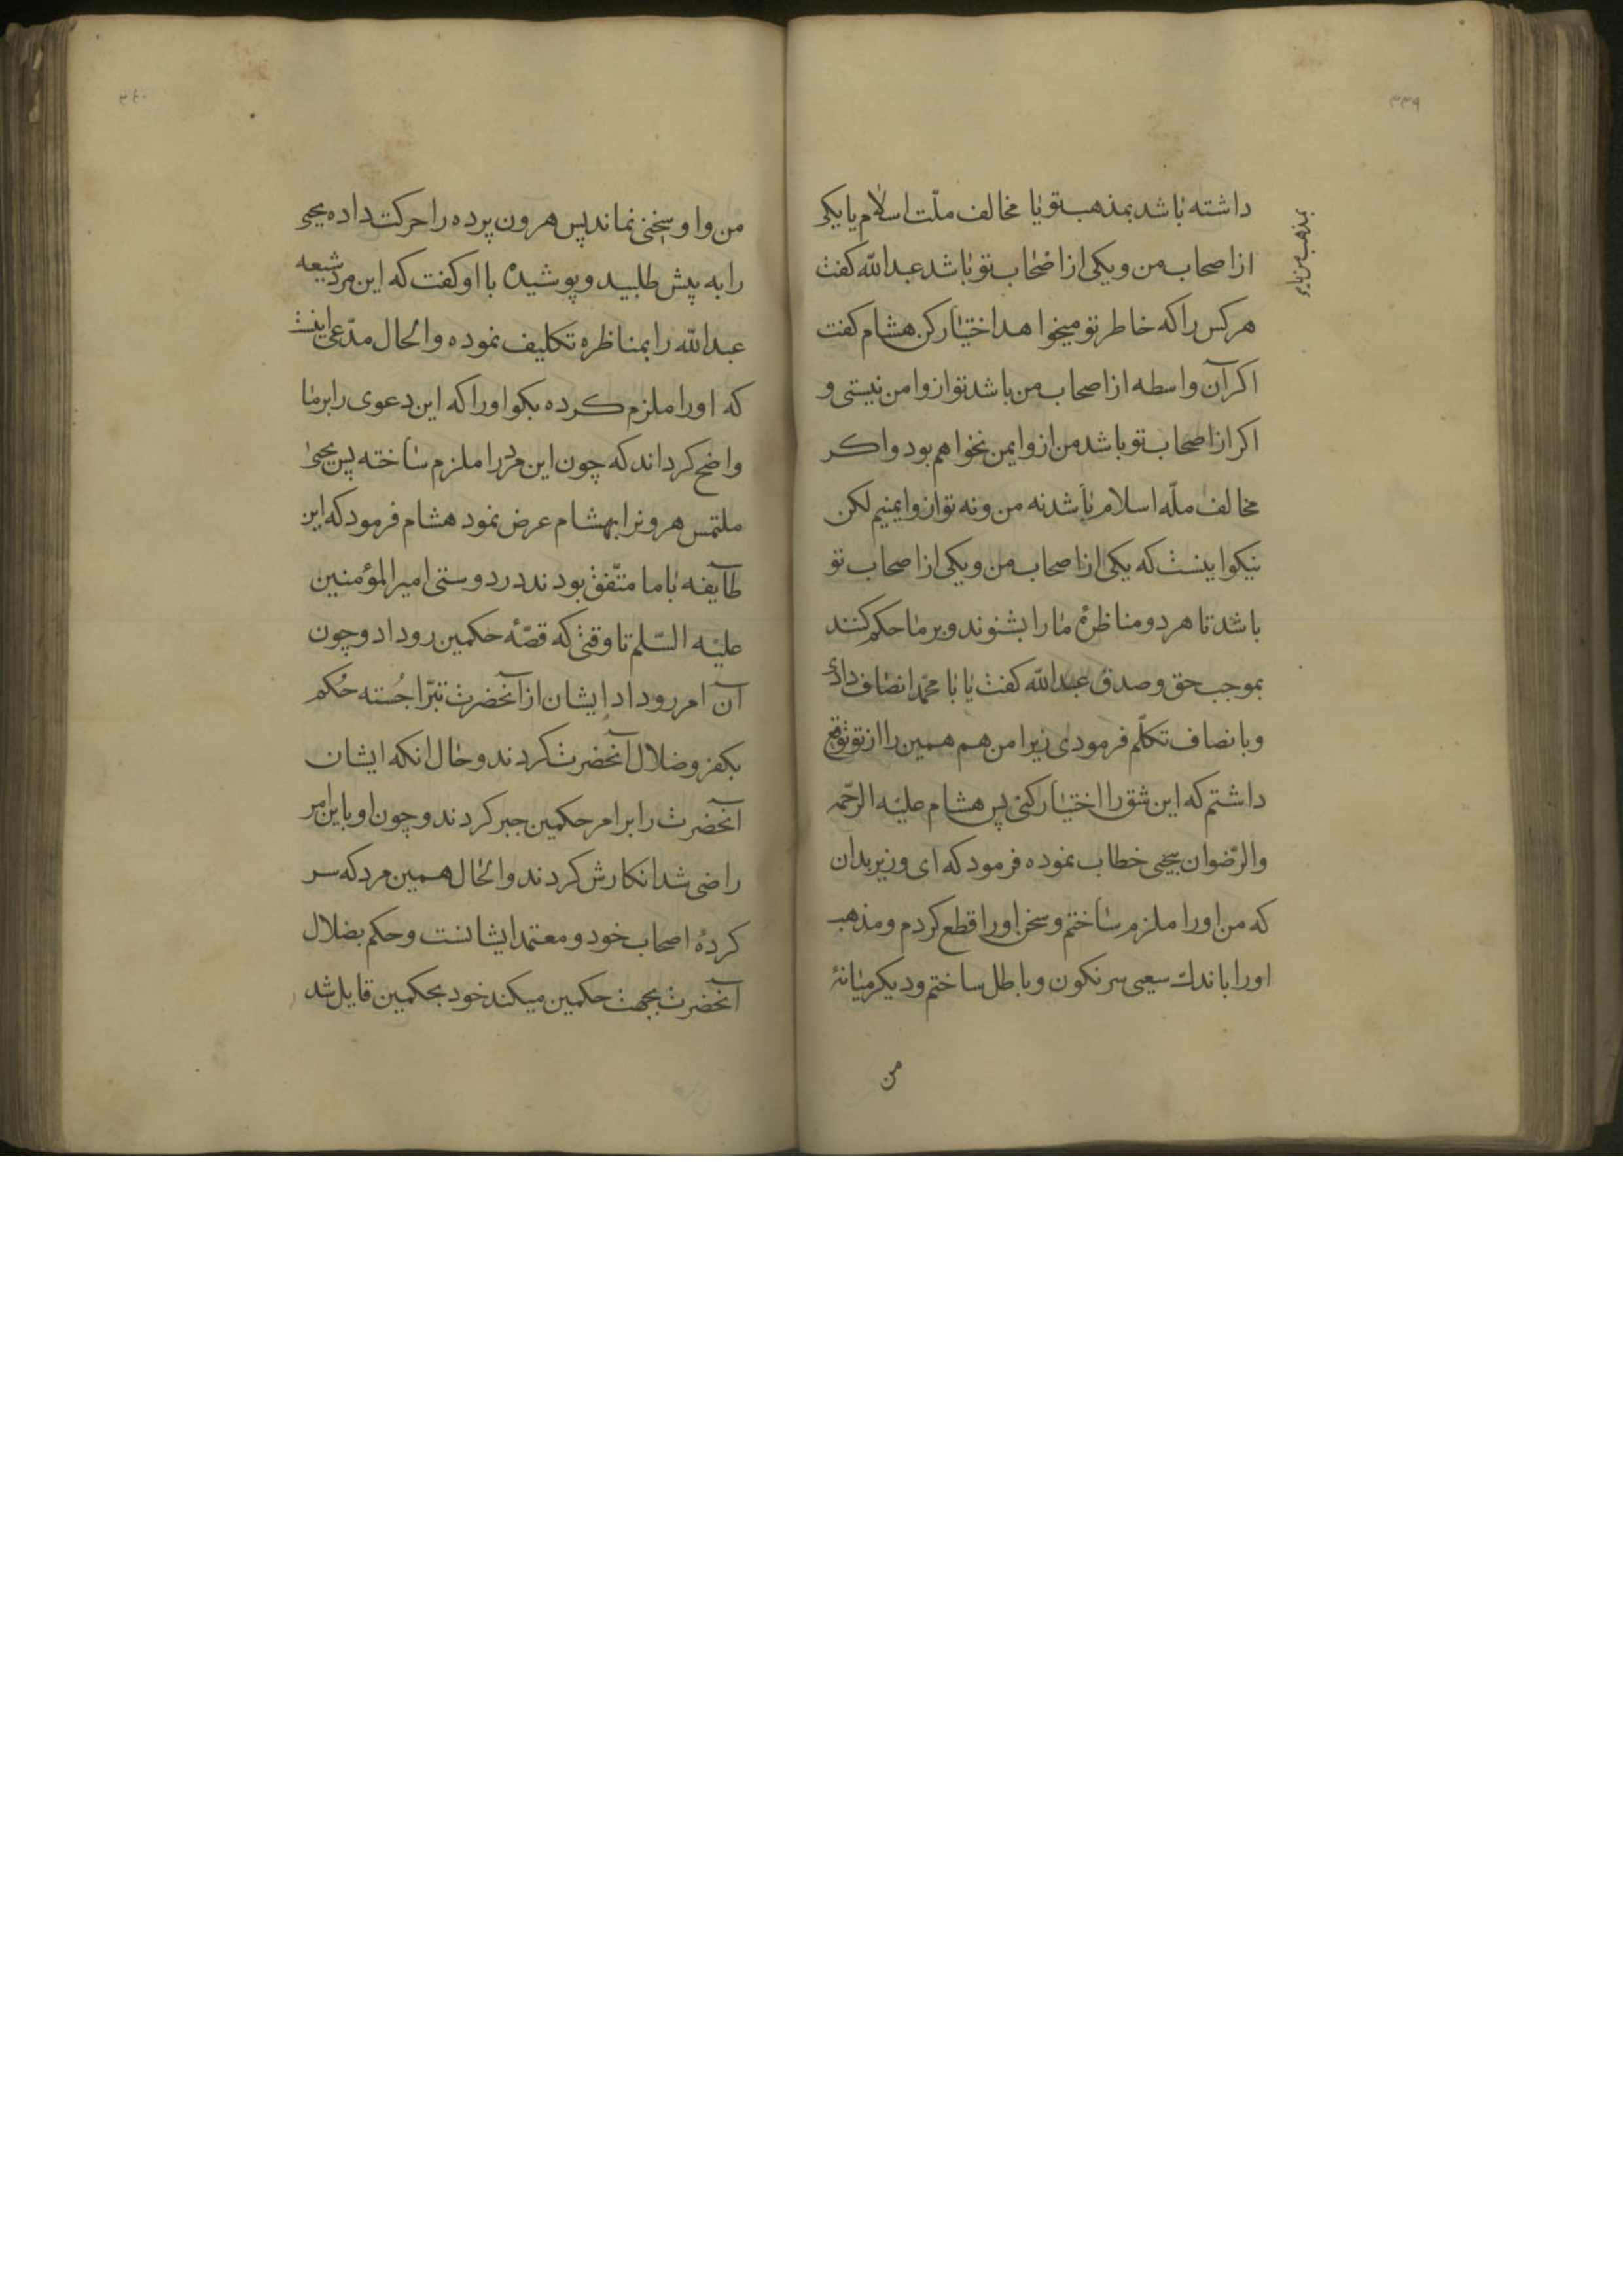 ٣٣٩
داشته باشد بمذهب تو یا مخالف ملّت اسلام یا یکی
بمذهب من یا
از اصحاب من و یکی از اصحاب تو باشد عبدالله کفت
هر کس را که خاطر تو میخواهد اختیار کن هشام کفت
اکر آن واسطه از اصحاب من باشد تو ازو امن نیستی و
اکر از اصحاب تو باشد من ازو ایمن نخواهم بود و اکر
مخالف ملّه اسلام باشد نه من و نه تو ازو ایمنیم لکن
نیکو اینست که یکی از اصحاب من و یکی از اصحاب تو
باشد تا هر دو مناظرهٔ ما را بشنوند و بر ما حکم کنند
بموجب حق و صدق عبدالله کفت یا با محمّد انصاف دادی
و بانصاف تکلّم فرمودی زیرا من هم همین را از تو توقع
داشتم که این شق را اختیار کنی پس هشام علیه الرّحمه
والرّضوان بیحیی خطاب نموده فرمود که ای وزیر بدان
که من او را ملزم ساختم و سخن او را قطع کردم و مذهب
او را باندك سعیی سرنکون و باطل ساختم و دیکر میانهٔ
من
٣٤٠
من و او سخنی نماند پس هرون پرده را حرکت داده یحیی
را به پیش طلبید و پوشیده با او کفت که این مرد شیعه
عبدالله را بمناظره تکلیف نموده والحال مدّعی اینست
که او را ملزم کرده بکو او را که این دعوی را بر ما
واضح کرداند که چون این مرد را ملزم ساخته پس یحیی
ملتمس هرونرا بهشام عرض نمود هشام فرمود که این
طآیفه با ما متّفق بودند در دوستی امیرالمؤمنین
علیه السّلم تا وقتی که قصّهٔ حکمین روداد و چون
آن امر روداد ایشان از آنحضرت تبرّا جُسته حُکم
بکفر و ضلال آنحضرت کردند و حال انکه ایشان
آنحضرت را بر امر حکمین جبر کردند و چون او باین امر
راضی شد انکارش کردند والحال همین مرد که سر
کردهٔ اصحاب خود و معتمد ایشانست و حکم بضلال
آنحضرت بجهت حکمین میکند خود بحکمین قایل شد